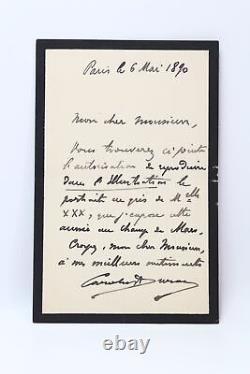 Paris le 6 Mai 1890
Mon cher monsieur,
Vous trouverez ci joint
l'autorisation de reproduire
dans l'Illustration le
portrait au grès de Mlle
XXX, que j'expose cette
année au Champ de Mars.
Croyez, mon cher Monsieur,
à mes meilleurs sentiments
Carolus Duran